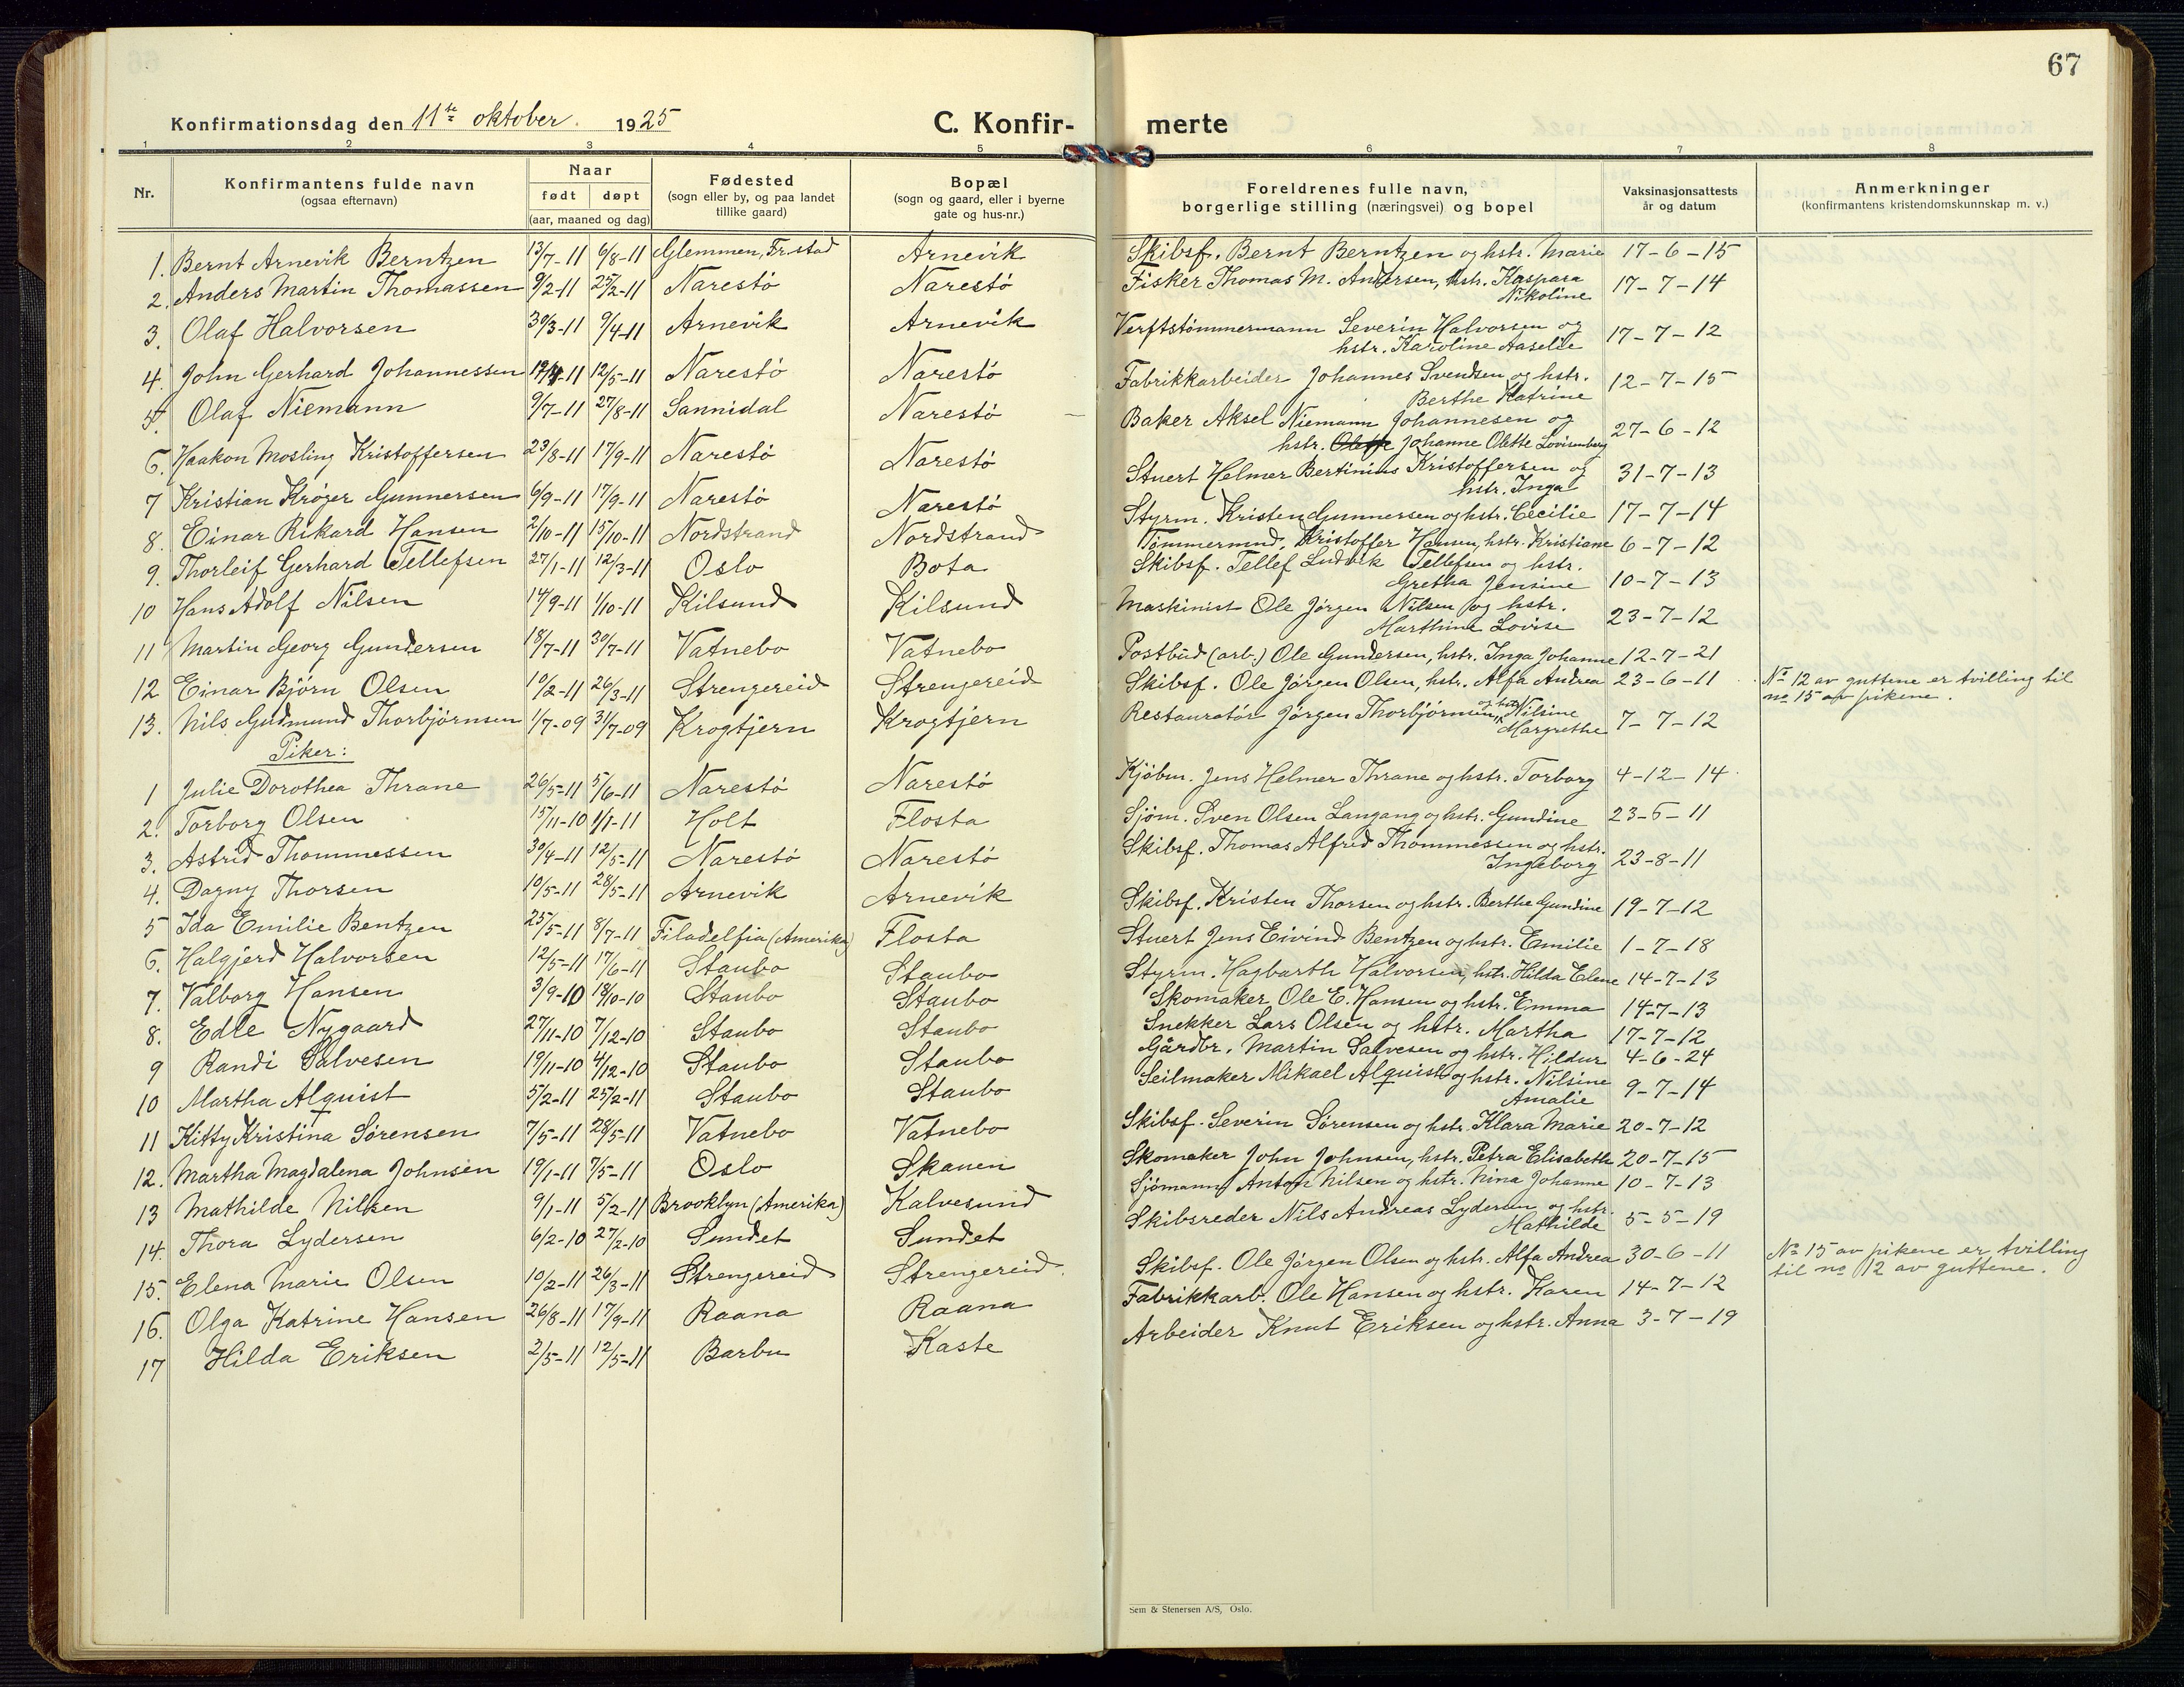 67
Konfirmationsdag den 11te oktober. 1925
C. Konfir- merte
1 2 3 4 5 6 7 8
Nr.
Konfirmantens fulde navn
(ogsaa efternavn)
Naar
født døpt
(aar, maaned og dag)
Fødested
(sogn eller by, og paa landet
tillike gaard)
Bopæl
(sogn og gaard, eller i byerne
gate og hus-nr.)
Foreldrenes fulle navn,
borgerlige stilling (næringsvei) og bopel
Vaksinasjonsattests
år og datum
Anmerkninger
(konfirmantens kristendomskunnskap m. v.)
1. Bernt Arnevik Berntzen 13/7-11 6/8-11 Glemmen, Fr.stad Arnevik Skibsf. Bernt Berntzen og hstr. Marie 17-6-15
2. Anders Martin Thomassen 9/2-11 25/2-11 Narestö Narestö Fisker Thomas M. Andersen, hstr. Kaspara
Nikoline 17-7-14
3. Olaf Halvorsen 30/3-11 9/4-11 Arnevik Arnevik Verftstömmermann Severin Halvorsen og
hstr. Karoline Aaselie 17-7-12
4. John Gerhard Johannessen 19/4-11 12/5-11 Narestö Narestö Fabrikkarbeider Johannes Svendsen og hstr.
Berthe Katrine 12-7-15
5. Olaf Niemann 9/7-11 27/8-11 Sannidal Narestö Baker Aksel Niemann Johannesen og
hstr. Johanne Olette Lovisenberg 27-6-12
6. Haakon Mosling Kristoffersen 23/8-11 17/9-11 Narestö Narestö Stuert Helmer Bertinius Kristoffersen og
hstr. Inga 31-7-13
7 Kristian Krøger Gunnersen 6/9-11 17/9-11 Narestö Narestö Styrm. Kristen Gunnersen og hstr. Cecilie 17-7-14
8. Einar Rikard Hansen 2/10-11 15/10-11 Nordstrand Nordstrand Tömmermnd. Kristoffer Hansen, hstr. Kristiane 6-7-12
9. Thorleif Gerhard Tellefsen 27/1-11 12/3-11 Oslo Bota Skibsf. Tellef Ludvik Tellefsen og hstr.
Gretha Jensine 10-7-13
10 Hans Adolf Nilsen 14/9-11 1/10-11 Kilsund Kilsund Maskinist Ole Jørgen Nilsen og hstr.
Marthine Lovise 23-7-12
11 Martin Georg Gundersen 18/7-11 30/7-11 Vatnebo Vatnebo Postbud (arb.) Ole Gundersen, hstr. Inga Johanne 12-7-21
12 Einar Bjørn Olsen 10/2-11 26/3-11 Strengereid Strengereid Skibsf. Ole Jørgen Olsen, hstr. Alfa Andrea 23-6-11 No 12 av guttene er tvilling til
no 15 av pikene.
13. Nils Gudmund Thorbjörnsen 1/7-09 31/7-09 Krogtjern Krogtjern Restauratör Jørgen Thorbjörnsen, og hstr. Nilsine
Margrethe 7-7-12
Piker:
1 Julie Dorothea Thrane 26/5-11 5/6-11 Narestö Narestö Kjöbm. Jens Helmer Thrane og hstr. Torborg 4-12-14
2. Torborg Olsen 15/11-10 1/1-11 Holt Flosta Sjöm. Sven Olsen Langang og hstr. Gundine 23-6-11
3. Astrid Thommessen 30/4-11 12/5-11 Narestö Narestö Skibsf. Thomas Alfred Thommessen og hstr.
Ingeborg 23-8-11
4. Dagny Thorsen 10/5-11 28/5-11 Arnevik Arnevik Skibsf. Kristen Thorsen og hstr. Berthe Gundine 19-7-12
5 Ida Emilie Bentzen 25/5-11 8/7-11 Filadelfia (Amerika) Flosta Stuert Jens Eivind Bentzen og hstr. Emilie 1-7-18
6. Halgjerd Halvorsen 12/5-11 17/6-11 Staubo Staubo Styrm. Hagbarth Halvorsen, hstr. Hilda Elene 14-7-13
7. Valborg Hansen 3/9-10 18/10-10 Staubo Staubo Skomaker Ole E. Hansen og hstr. Emma 14-7-13
8. Edle Nygaard 27/11-10 7/12-10 Staubo Staubo Snekker Lars Olsen og hstr. Martha 17-7-12
9 Randi Salvesen 19/11-10 4/12-10 Staubo Staubo Gårdbr. Martin Salvesen og hstr. Hildur 4-6-24
10 Martha Alquist 5/2-11 25/2-11 Staubo Staubo Seilmaker Mikael Alquist og hstr. Nilsine
Amalie 9-7-14
11 Kitty Kristina Sörensen 7/5-11 28/5-11 Vatnebo Vatnebo Skibsf. Severin Sörensen og hstr. Klara Marie 20-7-12
12. Martha Magdalena Johnsen 19/1-11 7/5-11 Oslo Skauen Skomaker John Johnsen, hstr. Petra Elisabeth 20-7-15
13 Mathilde Nilsen 9/1-11 5/2-11 Brooklyn (Amerika) Kalvesund Sjömann Anton Nilsen og hstr. Nina Johanne 10-7-13
14. Thora Lydersen 6/2-10 27/2-10 Sundet Sundet Skibsreder Nils Andreas Lydersen og hstr.
Mathilde 5-5-19
15. Elena Marie Olsen 10/2-11 26/3-11 Strengereid Strengereid. Skibsf. Ole Jørgen Olsen og hstr. Alfa Andrea 30-6-11 No 15 av pikene er tvilling
til no 12 av guttene.
16. Olga Katrine Hansen 26/8-11 17/9-11 Raana Raana Fabrikkarb. Ole Hansen og hstr. Karen 14-7-12
17 Hilda Eriksen 2/5-11 12/5-11 Barbu Kaste Arbeider Knut Eriksen og hstr. Anna 3-7-19
Sem & Stenersen A/S, Oslo.